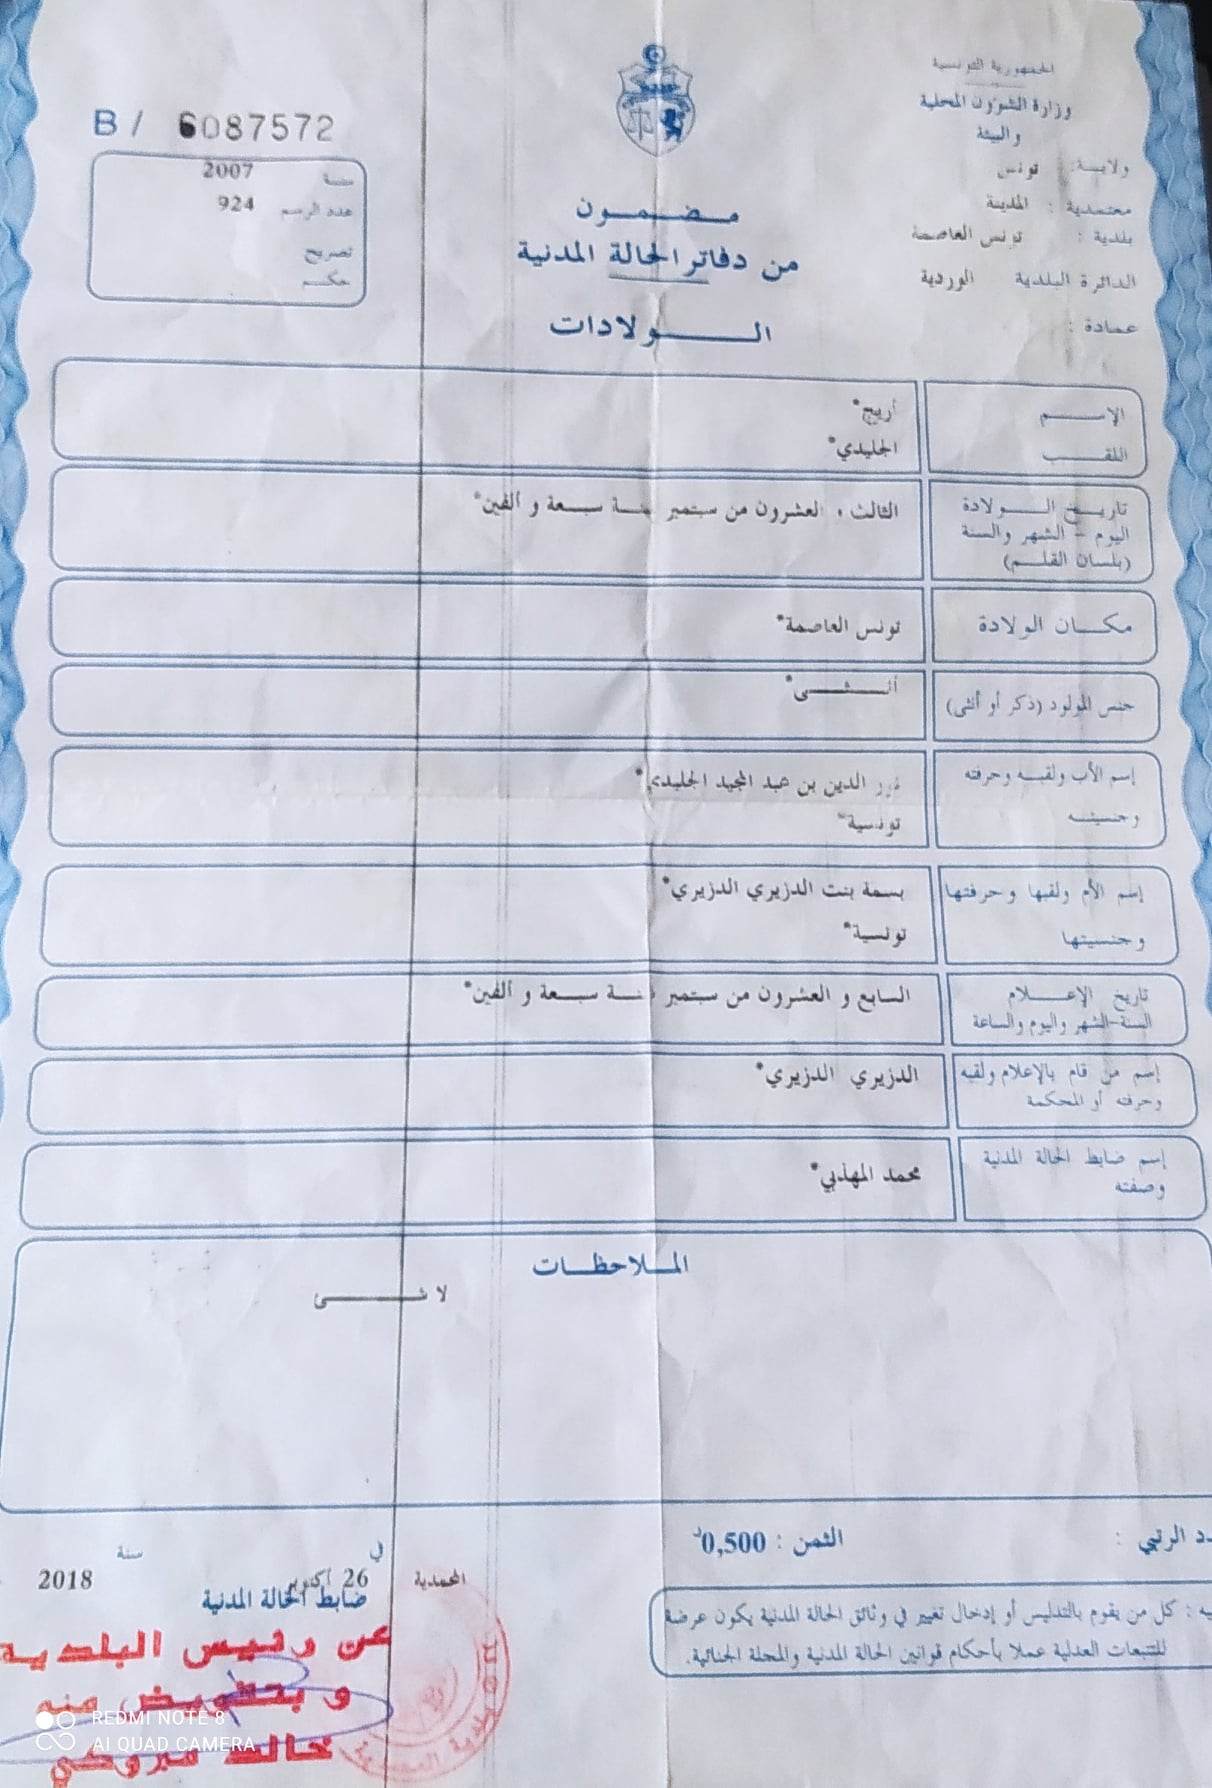 الجمهورية التونسية
وزارة الشؤون المحلية
والبيئة
ولاية: تونس
معتمدية : المدينة
بلدية : تونس العاصمة
الدائرة البلدية الوردية
عمادة :
B / 6087572
سنة 2007
عدد الرسم 924
تصريح
حكم
مضمون
من دفاتر الحالة المدنية
الولادات
الاسم أريج*
اللقب الجليدي*
تاريخ الولادة
اليوم - الشهر والسنة
(بلسان القلم)
الثالث و العشرون من سبتمبر سنة سبعة و ألفين*
مكان الولادة تونس العاصمة*
جنس المولود (ذكر أو أنثى) أنثى*
إسم الأب ولقبه وحرفته
وجنسيته
نور الدين بن عبد المجيد الجليدي*
تونسية*
إسم الأم ولقبها وحرفتها
وجنسيتها
بسمة بنت الدزيري الدزيري*
تونسية*
تاريخ الإعلام
السنة-الشهر واليوم والساعة
السابع و العشرون من سبتمبر سنة سبعة و ألفين*
إسم من قام بالإعلام ولقبه
وحرفته أو المحكمة
الدزيري الدزيري*
إسم ضابط الحالة المدنية
وصفته
محمد المهذبي*
الملاحظات
لا شى
الثمن : 0,500د
الرتبي :
المحمدية في 26 أكتوبر سنة 2018
ضابط الحالة المدنية
عن رئيس البلدية
و بتفويض منه
خالد مبروكي
: كل من يقوم بالتدليس أو إدخال تغيير في وثائق الحالة المدنية يكون عرضة
للتتبعات العدلية عملا بأحكام قوانين الحالة المدنية والمجلة الجنائية.
REDMI NOTE 8
AI QUAD CAMERA